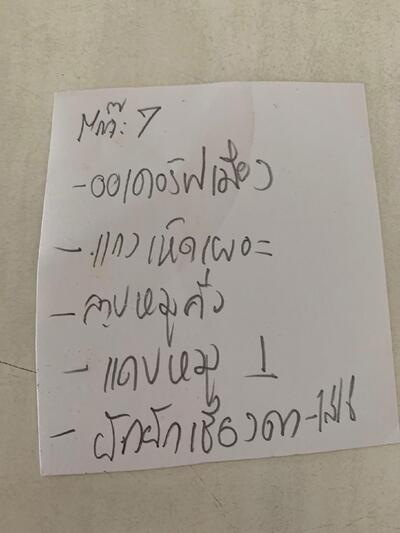 โต๊ะ 7
- ออเดอร์ฟเมือง
- แกงเห็ดเผาะ
- ลาบหมูคั่ว
- แคบหมู 1
- ผักผักเชียงดา-ไส่ไข่